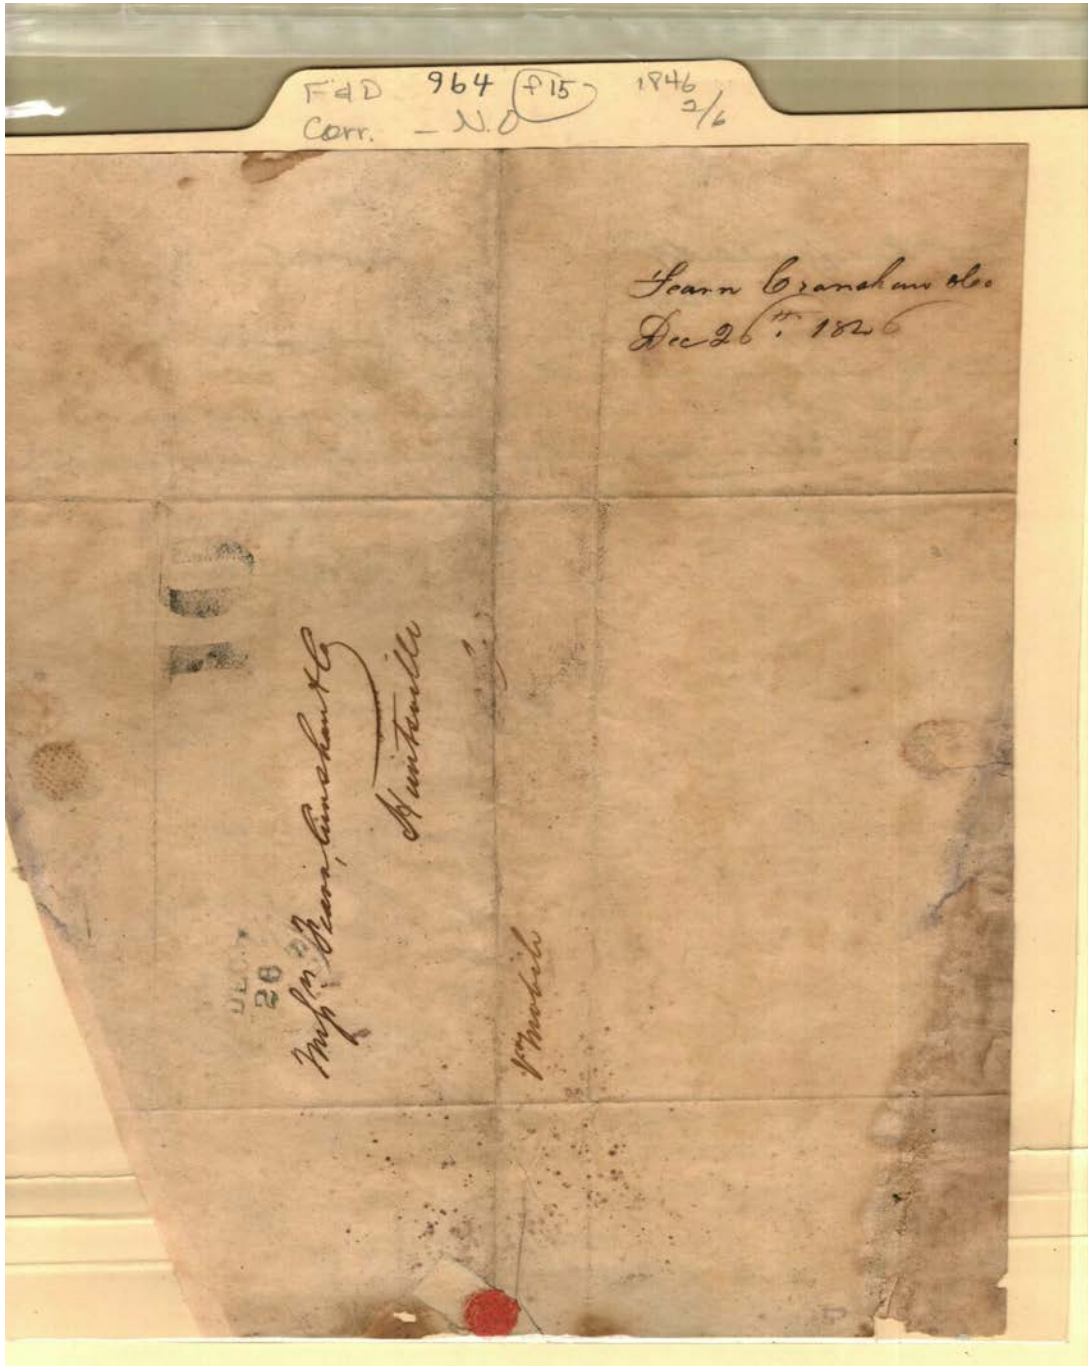 F&D 964 f15 1846
Corr. - N.O 2/6
Fearn Cranshaw &Co
Dec 26th. 1846
10
Messrs Fearn, Crenshaw & Co
Huntsville
DEC
26
Pr Mobile